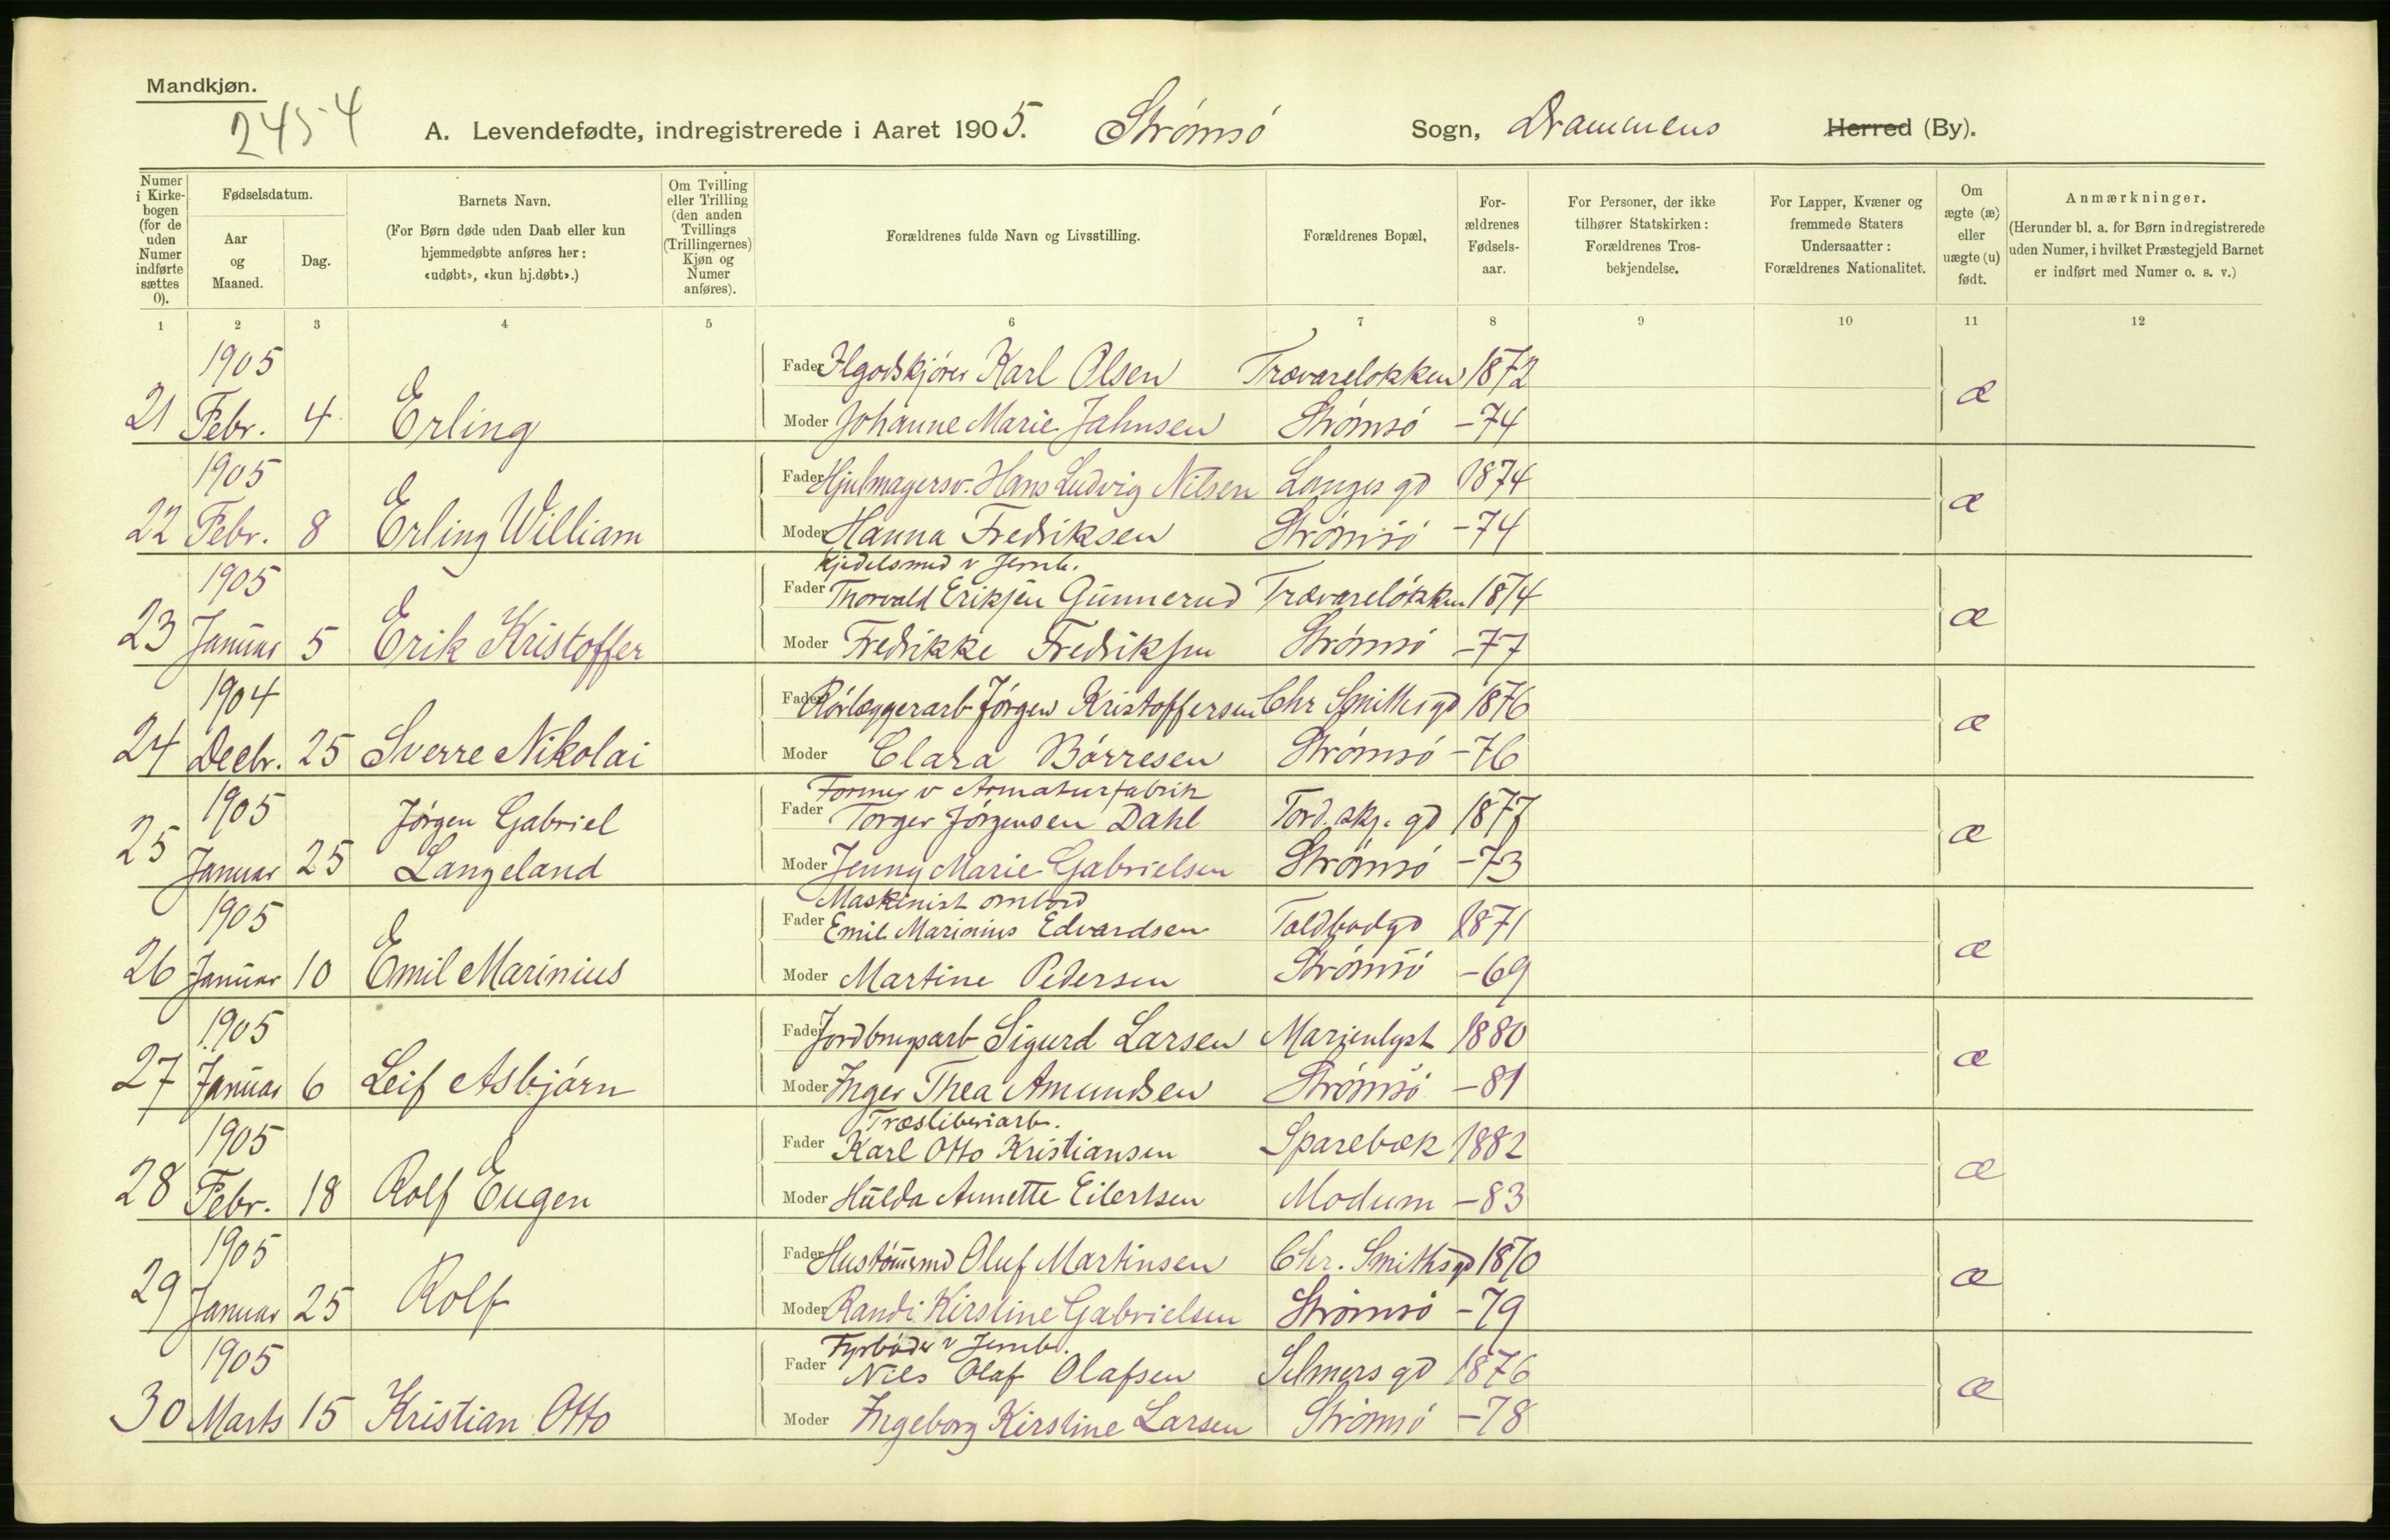 Mandkjøn.
2454
A. Levendefødte, indregistrerede i Aaret 1905. Strømsø Sogn, Drammens Herred (By).
Numer i Kirkebogen (for de uden Numer indførte sættes 0).
Fødselsdatum.
Aar og Maaned.
Dag.
Barnets Navn.
(For Børn døde uden Daab eller kun hjemmedøbte anføres her: «udøbt», «kun hj.døbt».)
Om Tvilling eller Trilling (den anden Tvillings (Trillingernes) Kjøn og Numer anføres).
Forældrenes fulde Navn og Livsstilling.
Forældrenes Bopæl,
Forældrenes Fødselsaar.
For Personer, der ikke tilhører Statskirken: Forældrenes Trosbekjendelse.
For Lapper, Kvæner og fremmede Staters Undersaatter: Forældrenes Nationalitet.
Om ægte (æ) eller uægte (u) født.
Anmærkninger.
(Herunder bl. a. for Børn indregistrerede uden Numer, i hvilket Præstegjeld Barnet er indført med Numer o. s. v.)
1 2 3 4 5 6 7 8 9 10 11 12
1905 Fader Ilgodskjører Karl Olsen Trævareløkken 1872 æ
21 Febr. 4 Erling Moder Johanne Marie Jahnsen Strømsø -74
1905 Fader Hjulmagersv. Hans Ludvig Nilsen Langes gd 1874 æ
22 Febr. 8 Erling William Moder Hanna Fredriksen Strømsø -74
Kjedelsmed v Jernb.
1905 Fader Thorvald Eriksen Gunnerud Trævareløkken 1874 æ
23 Januar 5 Erik Kristoffer Moder Fredrikke Fredriksen Strømsø -77
1904 Fader Rørlæggerarb Jørgen Kristoffersen Chr Smiths gd 1876 æ
24 Decbr. 25 Sverre Nikolai Moder Clara Børresen Strømsø -76
Former v Armaturfabrik
1905 Jørgen Gabriel Fader Torger Jørgensen Dahl Tord.skj. gd 1877 æ
25 Januar 25 Langeland Moder Jenny Marie Gabrielsen Strømsø -73
Maskinist ombord
1905 Fader Emil Marinius Edvardsen Toldbodgd 1871 æ
26 Januar 10 Emil Marinius Moder Martine Pedersen Strømsø -69
1905 Fader Jordbrugsarb Sigurd Larsen Marienlyst 1880 æ
27 Januar 6 Leif Asbjørn Moder Inger Thea Amundsen Strømsø -81
Træsliberiarb.
1905 Fader Karl Otto Kristiansen Sparebæk 1882 æ
28 Febr. 18 Rolf Eugen Moder Hulda Annette Eilertsen Modum -83
1905 Fader Hustømmd Oluf Martinsen Chr. Smiths gd 1870 æ
29 Januar 25 Rolf Moder Randi Kirstine Gabrielsen Strømsø -79
Fyrbøder v Jernb.
1905 Fader Nils Olaf Olafsen Selmers gd 1876 æ
30 Marts 15 Kristian Otto Moder Ingeborg Kirstine Larsen Strømsø -78